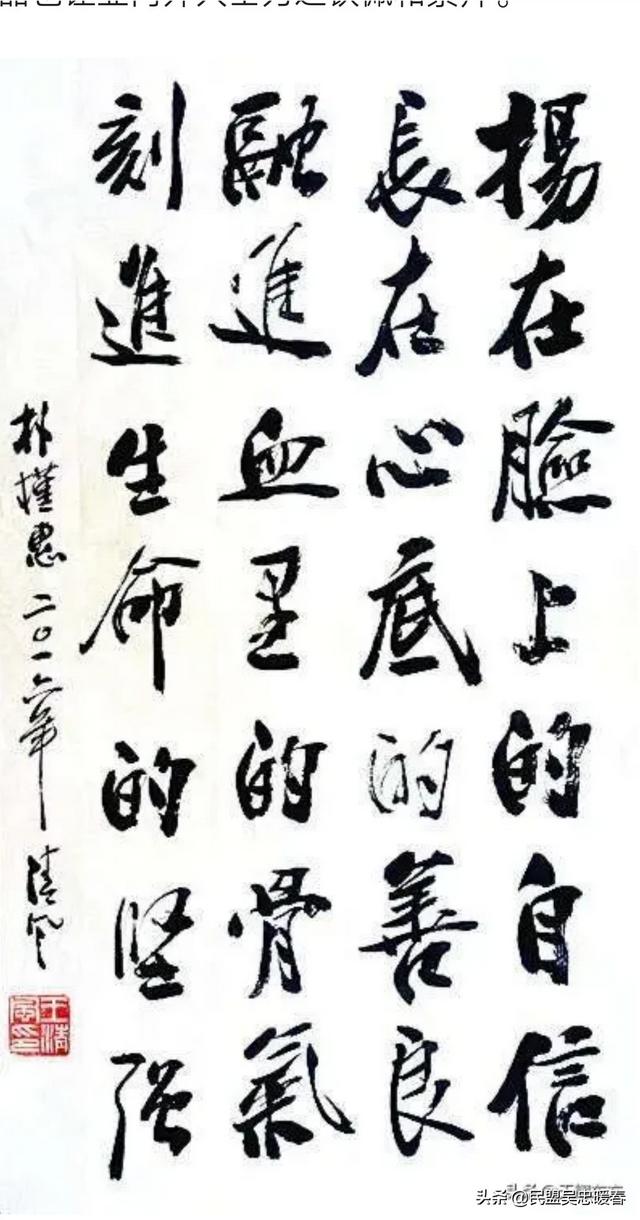 揚在臉上的自信
長在心底的善良
融進血里的骨氣
刻進生命的坚强
朴槿惠 二〇一六年 清风
王清風印
头条 @民盟吴忠暖春